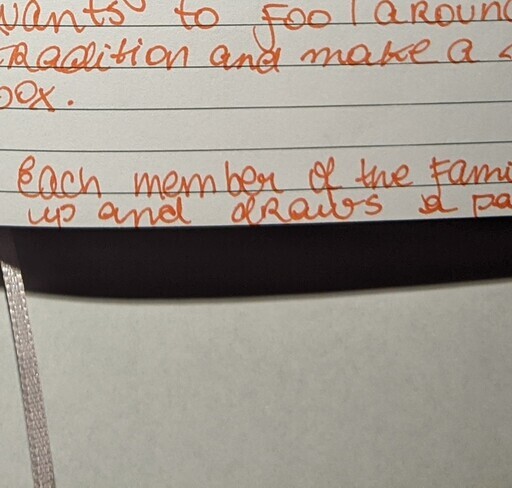 wants to fool around
tradition and make a
box.
Each member of the Fami
up and draws a pa